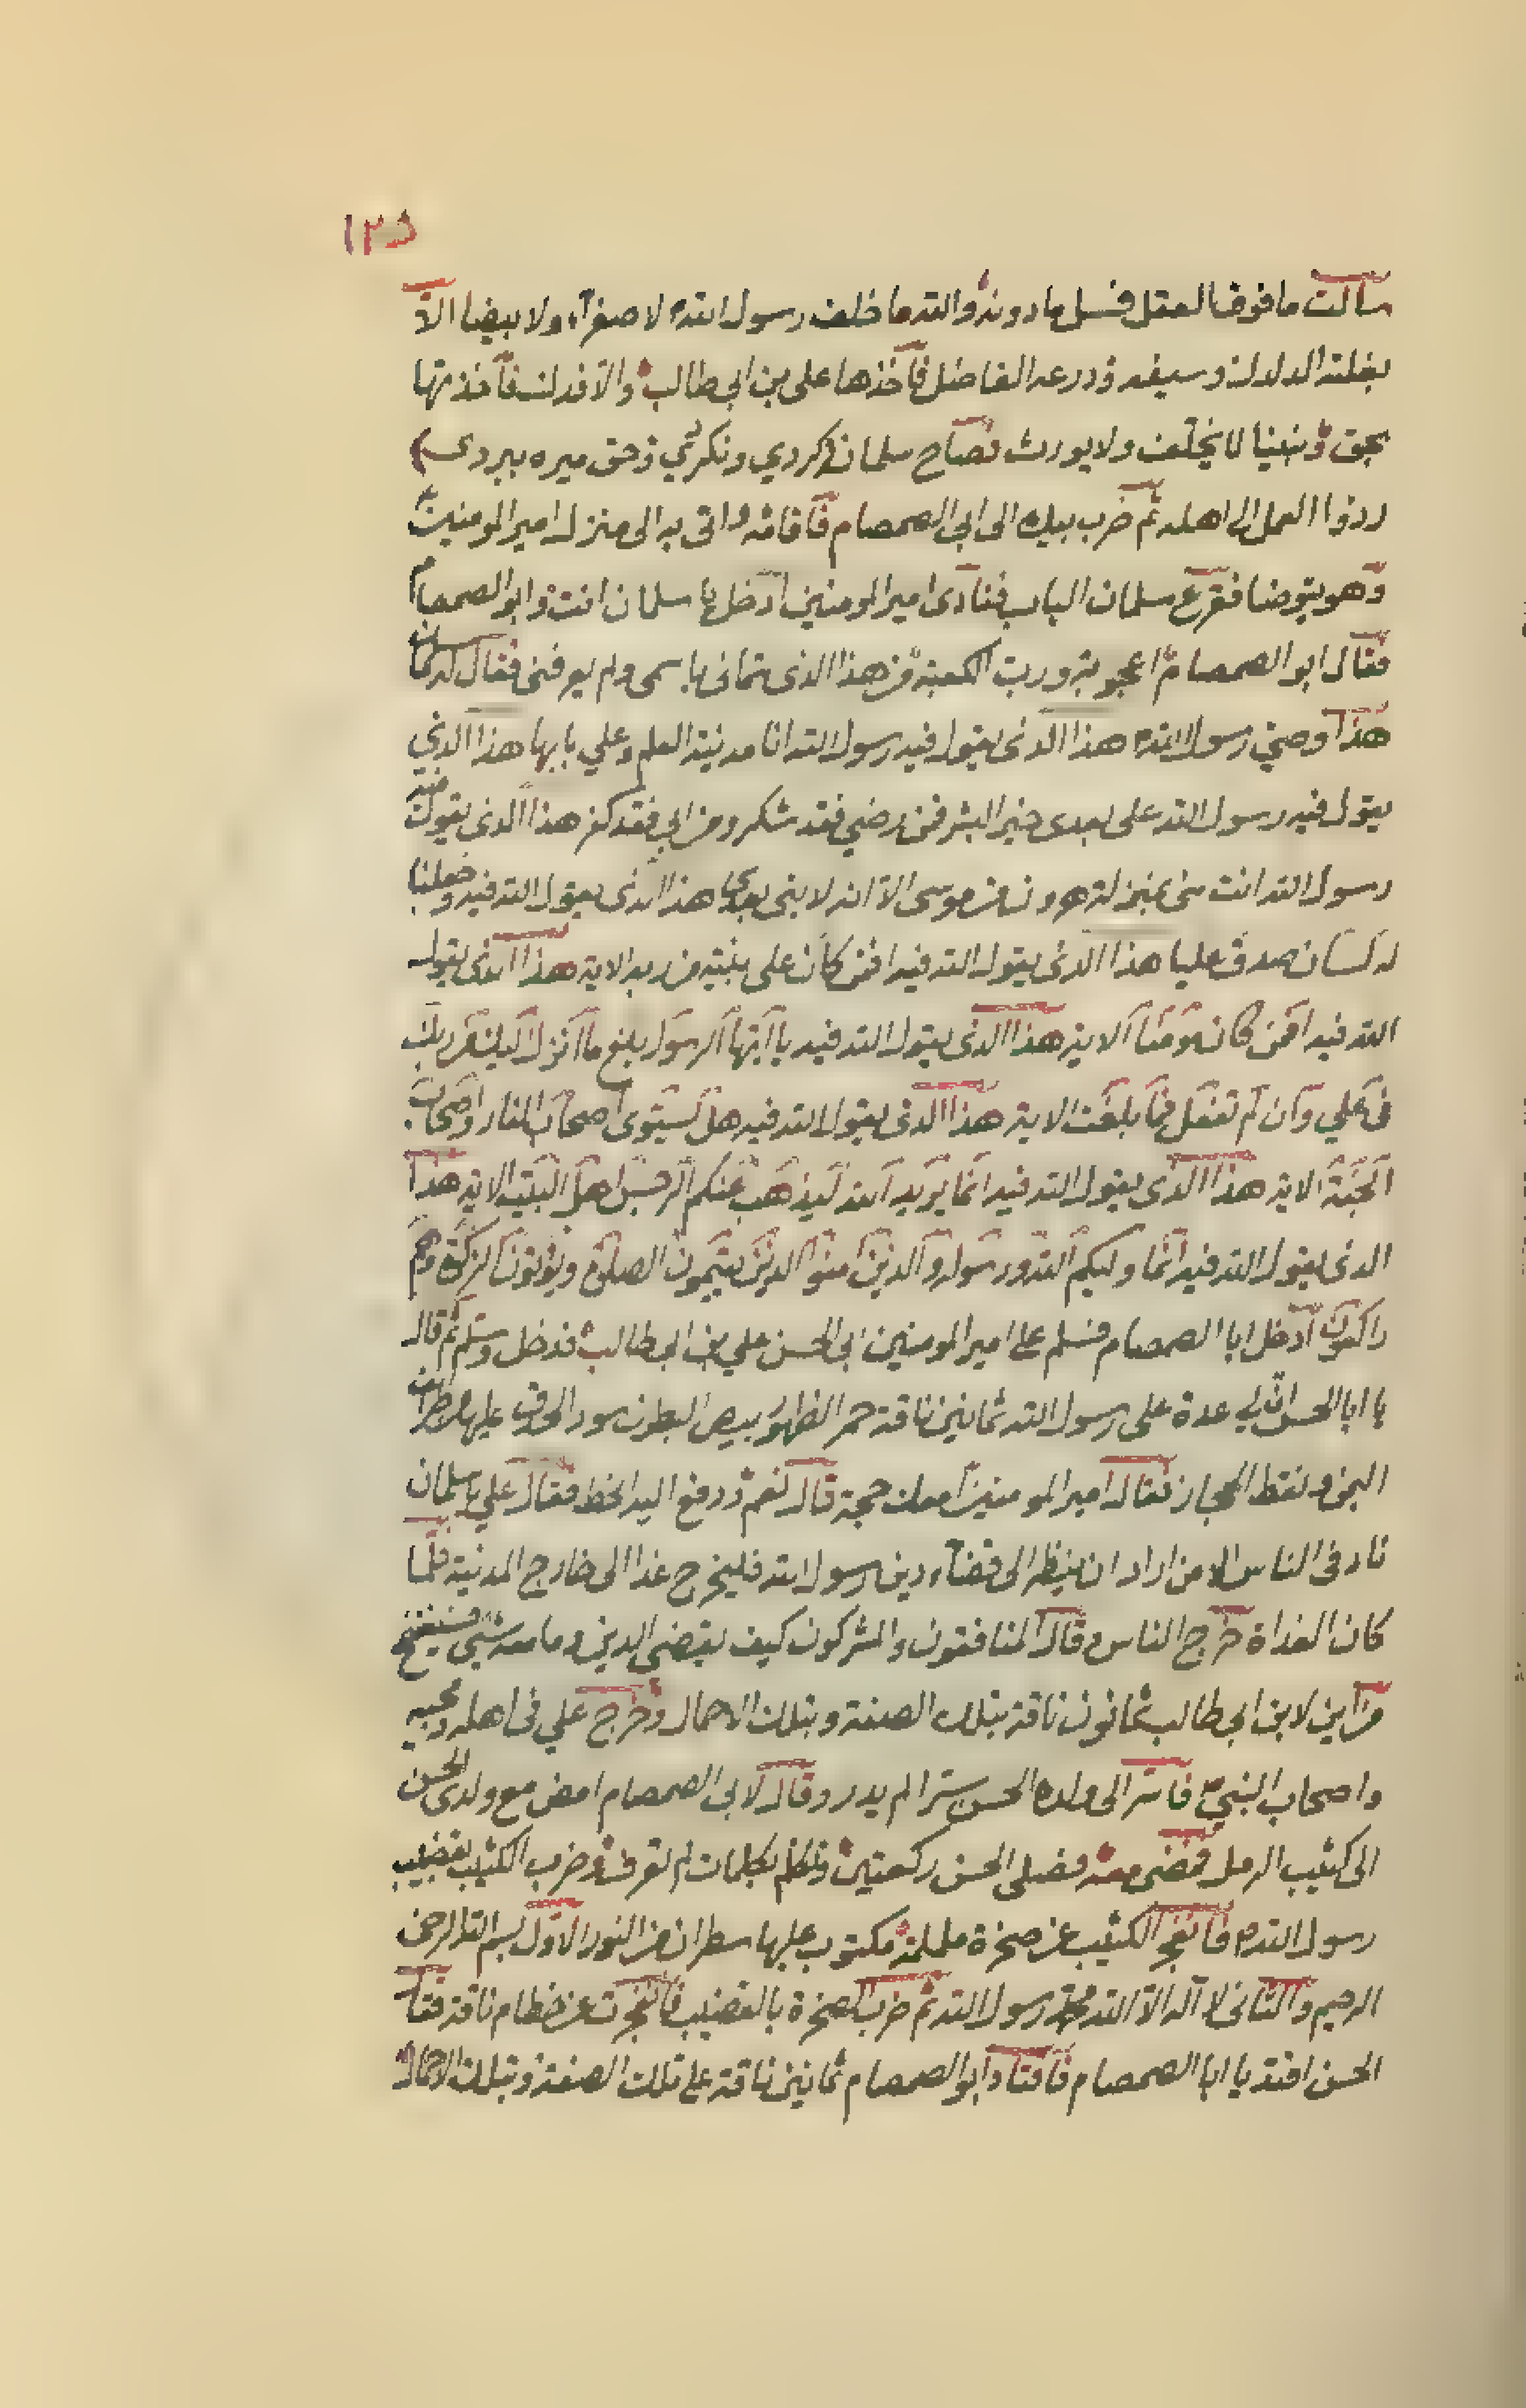 ١٢٥
سالت ما فوق العقل فسل ما دونه والله ما خلف رسول الله لا صفرآء ولا بيضا الا
بغلته الدلدل وسيفه ودرعه الفاضل فآخذها علي بن ابي طالب والا فدك فآخذتها
بحق ونبينا لا يخلف ولا يورث فصاح سلمان كردي ونكردي وحق ميره ببردي
ردوا العمل الى اهله ثم ضرب بيده الى ابي الصمصام فآقامه واتى به الى منزل امير المومنين
وهو يتوضا فقرع سلمان الباب فنادى امير المومنين ادخل يا سلمان انت وابو الصمصام
فقال ابو الصمصام اعجوبة ورب الكعبة من هذا الذى سمانى باسمى ولم يعرفنى فقال له سلمان
هذا وصي رسول الله هذا الذى يقول فيه رسول الله انا مدينة العلم وعلي بابها هذا الذي
يقول فيه رسول الله على بعدى خير البشر فمن رضي فقد شكر ومن ابي فقد كفر هذا الذى يقول فيه
رسول الله انت منى بمنزلة هرون من موسى الا انه لا بنى بعدى هذا الذى يقول الله فيه وجعلنا
له لسان صدق عليا هذا الذى يقول الله فيه افمن كان على بينة من ربه الاية هذا الذى يقول
الله فيه افمن كان مؤمنا الاية هذا الذى يقول الله فيه يا ايها الرسول بلغ ما انزل اليك من ربك
فى علي وان لم تفعل فما بلغت الاية هذا الذى يقول الله فيه هل يستوى اصحاب النار واصحاب
الجنة الاية هذا الذى يقول الله فيه انما يريد الله ليذهب عنكم الرجس اهل البيت الاية هذا
الذى يقول الله فيه انما وليكم الله ورسوله والذين آمنوا الذين يقيمون الصلوة ويؤتون الزكوة وهم
راكعون ادخل ابا الصمصام فسلم على امير المومنين ابى الحسن علي بن ابى طالب فدخل وسلم ثم قال
يا ابا الحسن ان لي عدة على رسول الله ثمانين ناقة حمر الظهور بيض البطون سود الحدق عليها من طرائف
اليمن ونقط الحجاز فقال امير المومنين امعك حجة قال نعم ودفع اليه الخط فقال علي يا سلمان
ناد فى الناس الا من اراد ان ينظر الى قضآء دين رسول الله فليخرج غدا الى خارج المدينة فلما
كان الغداة خرج الناس وقال المنافقون والمشركون كيف يقضى الدين وما معه شيى
من اين لابن ابى طالب ثمانون ناقة بتلك الصفة وبتلك الاحمال وخرج علي فى اهله ومحبيه
واصحاب النبي فاسر الى ولده الحسن سترا لم يدر وقال لابى الصمصام امض مع ولدى الحسن
الى كثيب الرمل فمضى معه فصلى الحسن ركعتين وتكلم بكلمات لم تعرف وضرب الكثيب بقضيب
رسول الله فانفجر الكثيب عن صخرة ململمة مكتوب عليها سطران من النور الاول بسم الله الرحمن
الرحيم والثانى لا آله الا الله محمد رسول الله ثم ضرب الصخرة بالقضيب فانفجرت عن خطام ناقة فقال
الحسن اقتد يا ابا الصمصام فآقتاد ابو الصمصام ثمانين ناقة على تلك الصفة وبتلك الاحمال